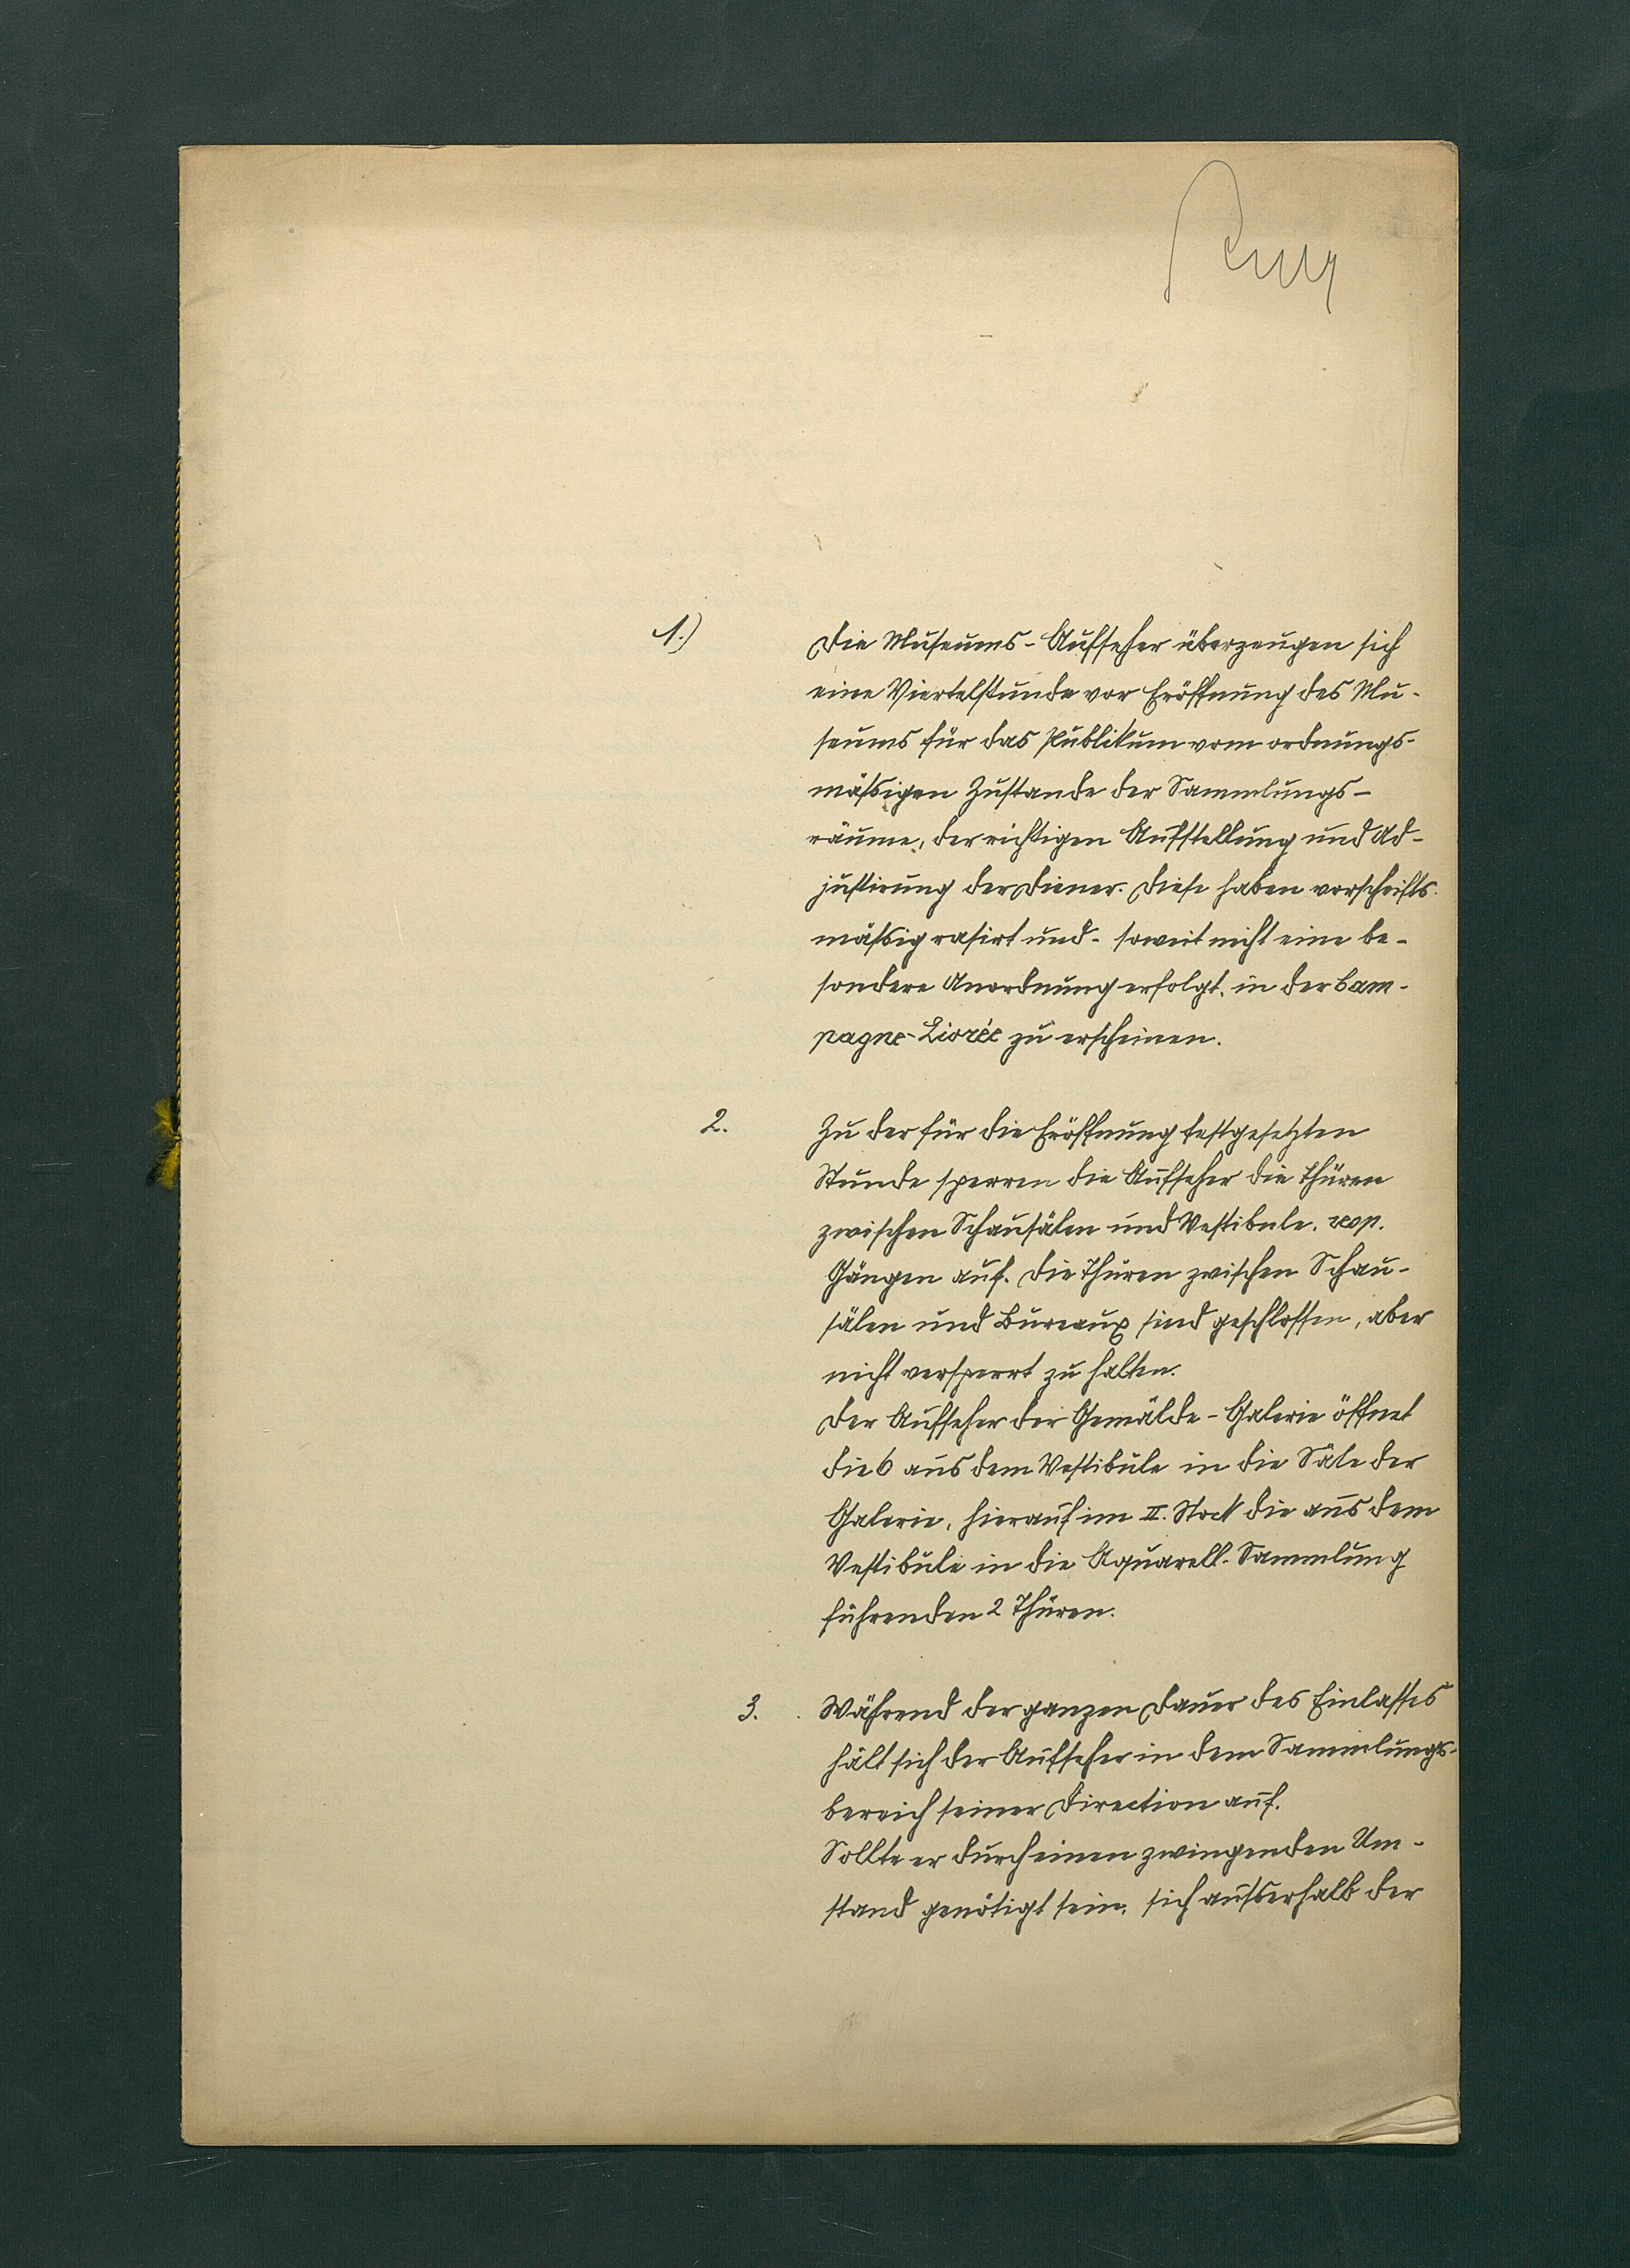 1.)
Die Museums-Aufseher überzeugen sich
eine Viertelstunde vor Eröffnung des Mu-
seums für das Publikum vom ordnungs-
mäßigen Zustande der Sammlungs-
räume, der richtigen Aufstellung und Ad-
justirung der Diener. Diese haben vorschrifts-
mäßig rasirt und - soweit nicht eine be-
sondere Anordnung erfolgt, in der Cam-
pagne-Livrée zu erscheinen.
2.
Zu der für die Eröffnung festgesetzten
Stunde sperren die Aufseher die Thüren
zwischen Schausälen und Vestibule, resp.
Gängen auf. Die Thüren zwischen Schau-
sälen und Bureaux sind geschlossen, aber
nicht versperrt zu halten.
Der Aufseher der Gemälde-Galerie öffnet
die 6 aus dem Vestibule in die Säle der
Galerie, hierauf im II. Stock die aus dem
Vestibule in die Aquarell-Sammlung
führenden 2 Thüren.
3.
Während der ganzen Dauer des Einlasses
hält sich der Aufseher in dem Sammlungs-
bereich seiner Direction auf.
Sollte er durch einen zwingenden Um-
stand genötigt sein, sich außerhalb der